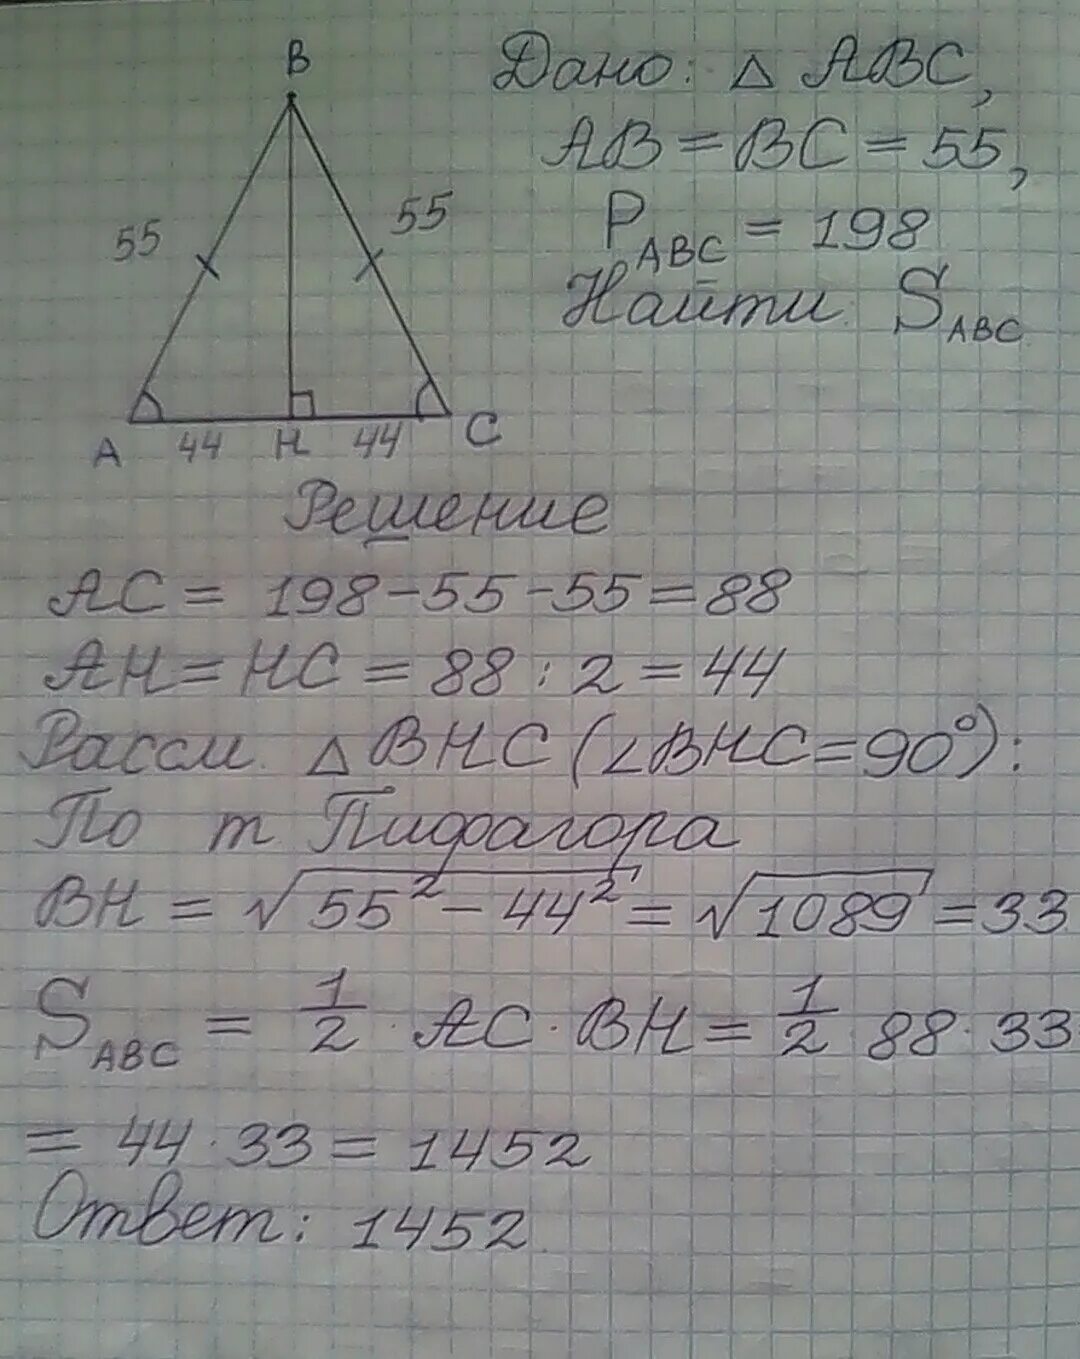 B
Дано: △ ABC,
AB = BC = 55,
P_ABC = 198
Найти S_ABC
55
55
A 44 H 44 C
Решение
AC = 198 - 55 - 55 = 88
AH = HC = 88 : 2 = 44
Рассм. △ BHC (∠BHC = 90°):
По т Пифагора
BH = √55² - 44² = √1089 = 33
S_ABC = 1/2 · AC · BH = 1/2 88 · 33
= 44 · 33 = 1452
Ответ: 1452